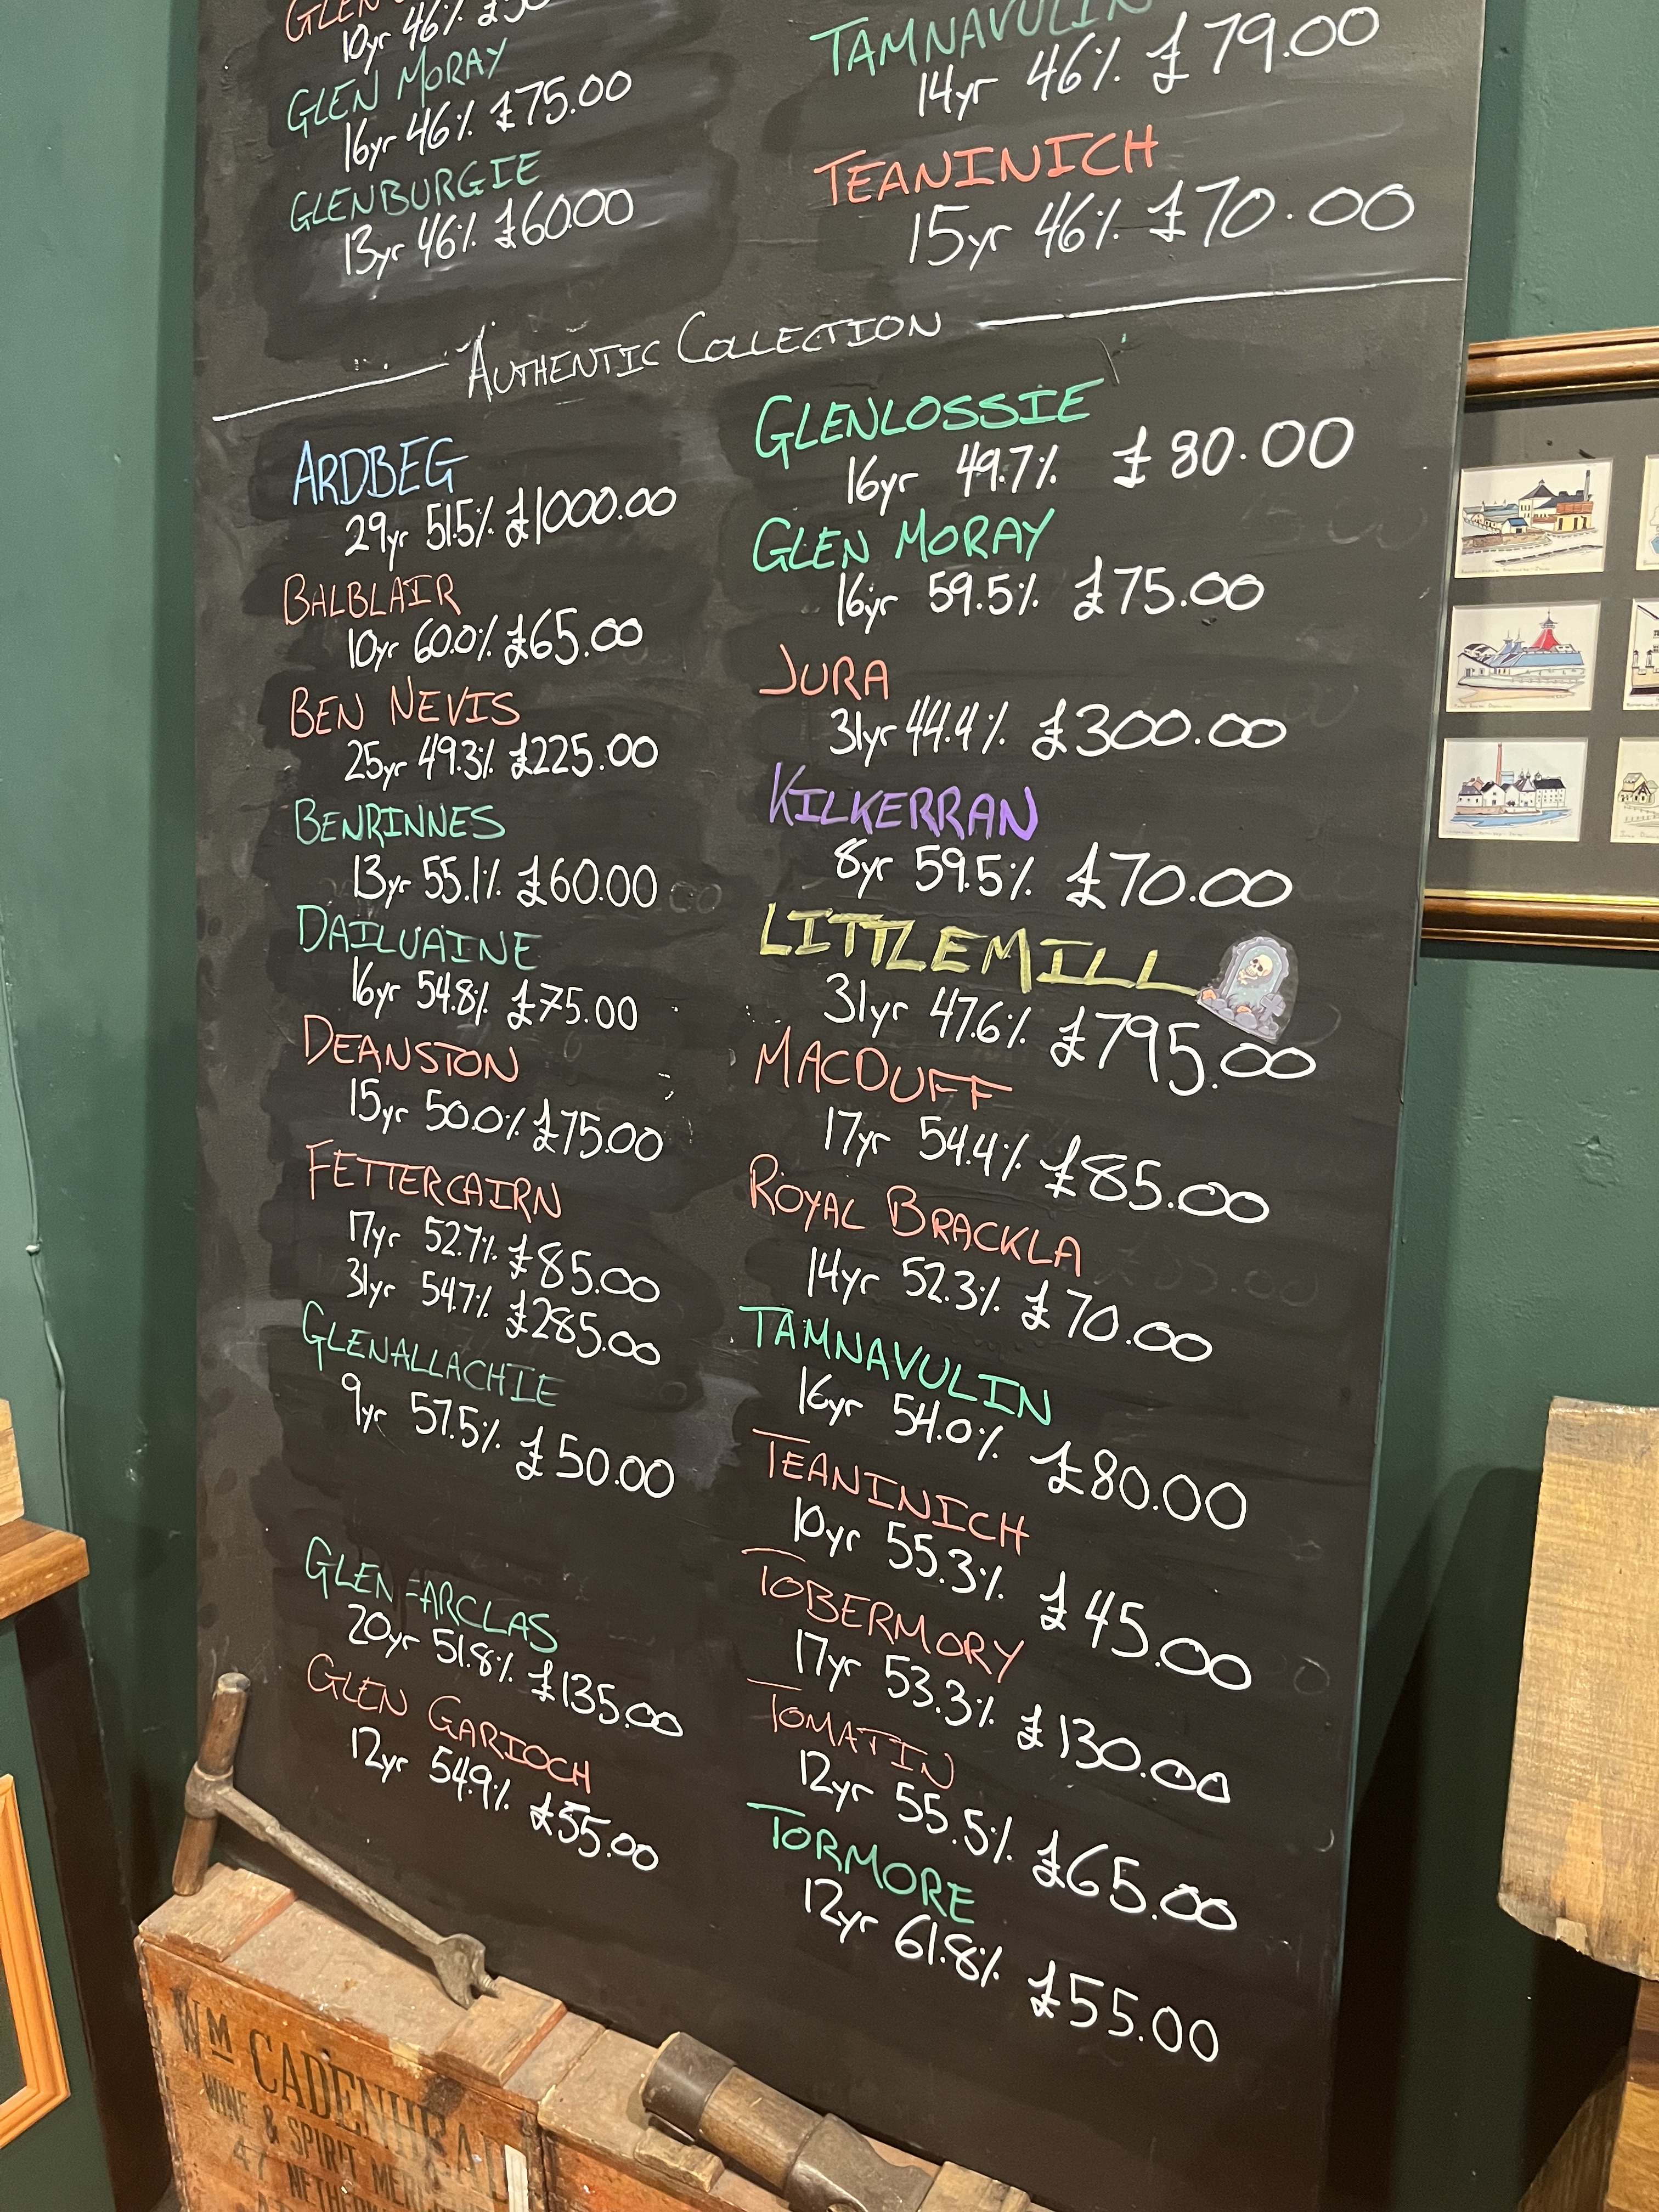 GLEN
10yr 46%
GLEN MORAY
16yr 46% £75.00
GLENBURGIE
13yr 46% £60.00
TAMNAVULIN
14yr 46% £79.00
TEANINICH
15yr 46% £70.00
AUTHENTIC COLLECTION
ARDBEG
29yr 51.5% £1000.00
BALBLAIR
10yr 60.0% £65.00
BEN NEVIS
25yr 49.3% £225.00
BENRINNES
13yr 55.1% £60.00
DAILUAINE
16yr 54.8% £75.00
DEANSTON
15yr 50.0% £75.00
FETTERCAIRN
17yr 52.7% £85.00
31yr 54.7% £285.00
GLENALLACHIE
9yr 57.5% £50.00
GLENFARCLAS
20yr 51.8% £135.00
GLEN GARIOCH
12yr 54.9% £55.00
GLENLOSSIE
16yr 49.7% £80.00
GLEN MORAY
16yr 59.5% £75.00
JURA
31yr 44.4% £300.00
KILKERRAN
8yr 59.5% £70.00
LITTLEMILL
31yr 47.6% £795.00
MACDUFF
17yr 54.4% £85.00
ROYAL BRACKLA
14yr 52.3% £70.00
TAMNAVULIN
16yr 54.0% £80.00
TEANINICH
10yr 55.3% £45.00
TOBERMORY
17yr 53.3% £130.00
TOMATIN
12yr 55.5% £65.00
TORMORE
12yr 61.8% £55.00
WM CADENHEAD
WINE & SPIRIT
47